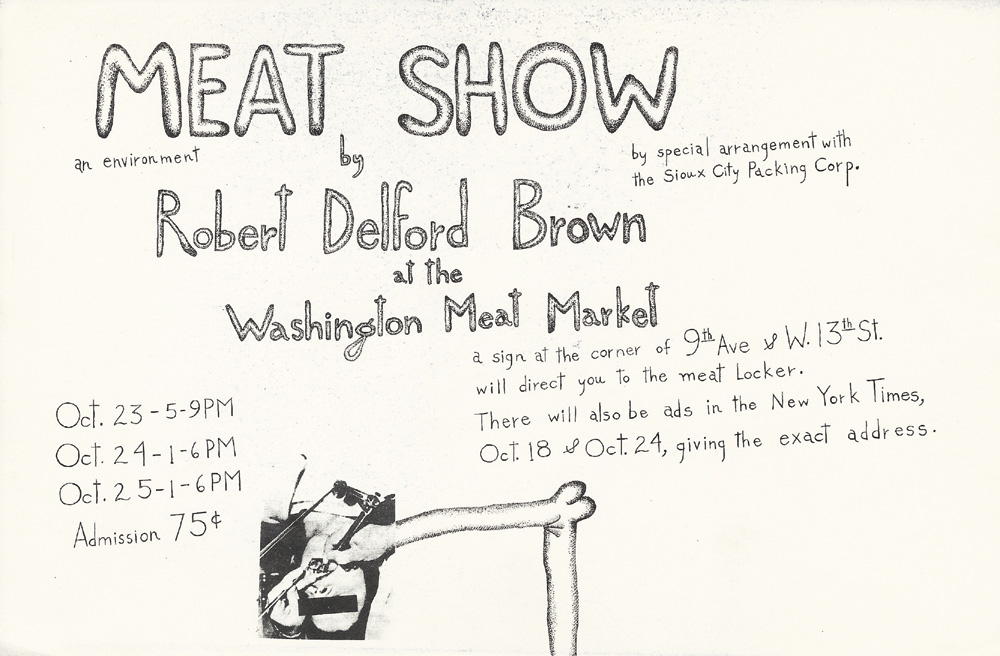 MEAT SHOW
an environment
by
by special arrangement with
the Sioux City Packing Corp.
Robert Delford Brown
at the
Washington Meat Market
a sign at the corner of 9th Ave & W. 13th St.
will direct you to the meat Locker.
There will also be ads in the New York Times,
Oct. 18 & Oct. 24, giving the exact address.
Oct. 23 - 5-9PM
Oct. 24 - 1-6PM
Oct. 25 - 1-6PM
Admission 75¢